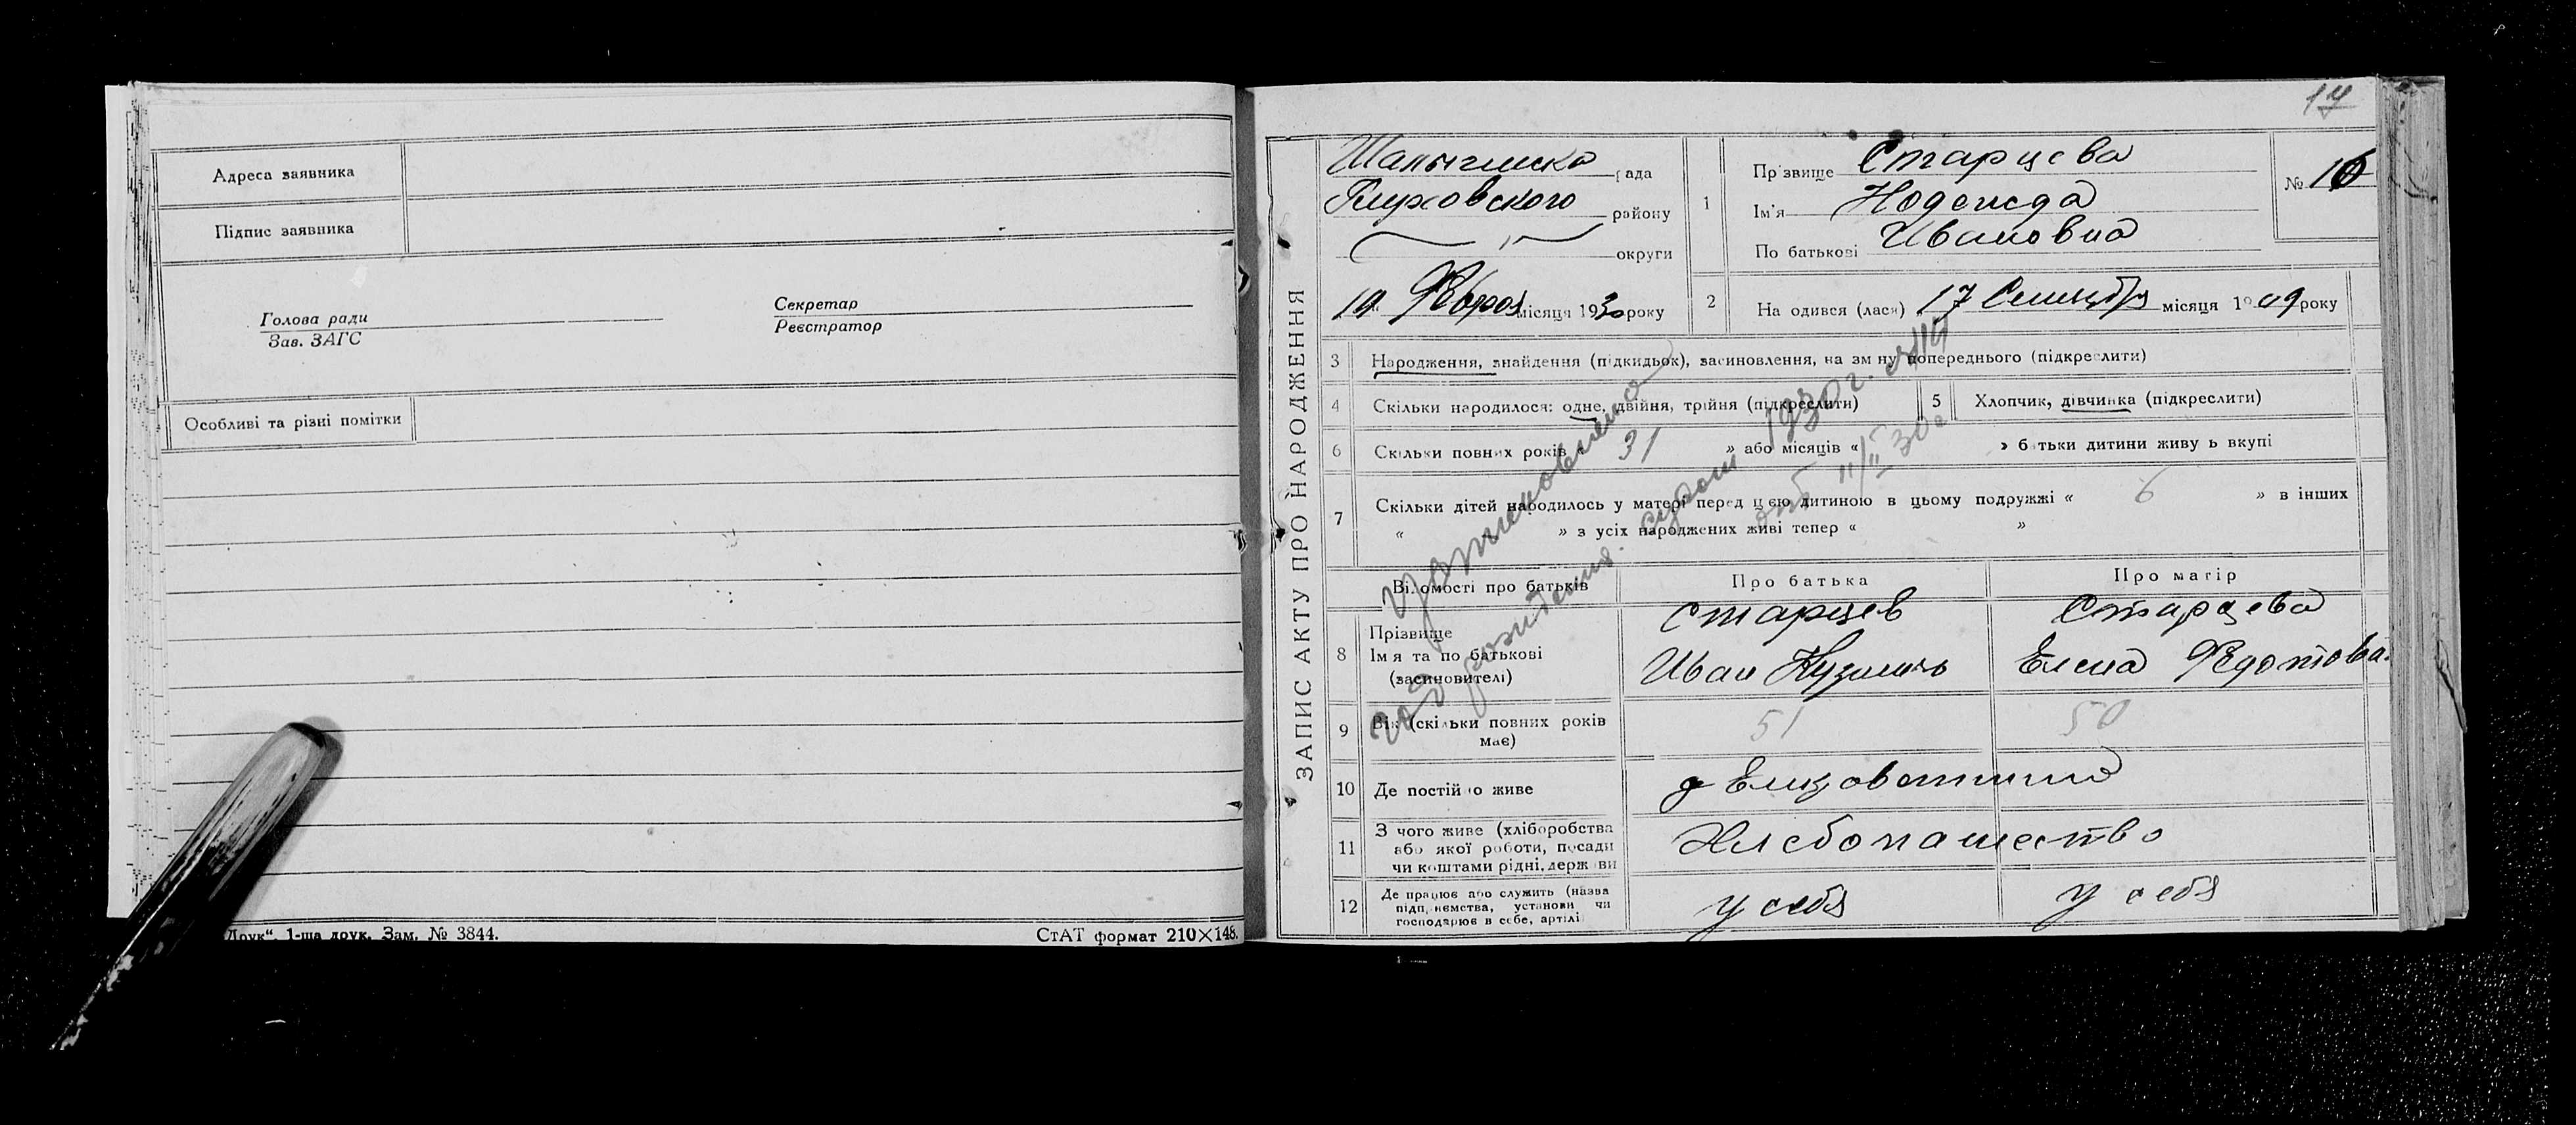 Адреса заявника
Підпис заявника
Голова ради
Зав. ЗАГС
Секретар
Реєстратор
Особливі та різні помітки
Друк“. 1-ша друк. Зам. № 3844.
СтАТ формат 210×148.
14
ЗАПИС АКТУ ПРО НАРОДЖЕННЯ
Шалыгинска рада
Глуховского району
округи
Феврал місяця 1930 року
1
Прізвище Старцева
Ім'я Надежда
По батькові Ивановна
№ 16
2
На одився (лася) 17 Сентября місяця 1909 року
3 Народження, знайдення (підкидьок), засиновлення, на зм ну попереднього (підкреслити)
4 Скільки народилося: одне, двійня, трійня (підкреслити)
5 Хлопчик, дівчинка (підкреслити)
6 Скільки повних років « 31 » або місяців « » батьки дитини живу ь вкупі
7 Скільки дітей народилось у матері перед цею дитиною в цьому подружжі « 6 » в інших
« » з усіх народжених живі тепер « »
год рождения.
1930 г.
Відомості про батьків
Про батька
Про матір
8 Прізвище
Ім я та по батькові
(засиновителі)
Старцев
Иван Кузмичь
Старцева
Елена Федотова
9 Вік (скільки повних років
має)
51
50
10 Де постійно живе
д Елизаветино
11 З чого живе (хліборобства
або якої роботи, посади
чи коштами рідні, держ ви
Хлебопашество
12 Де працює або служить (назва
підп. иємства, установи чи
господарює в себе, артілі
у себя
у себя